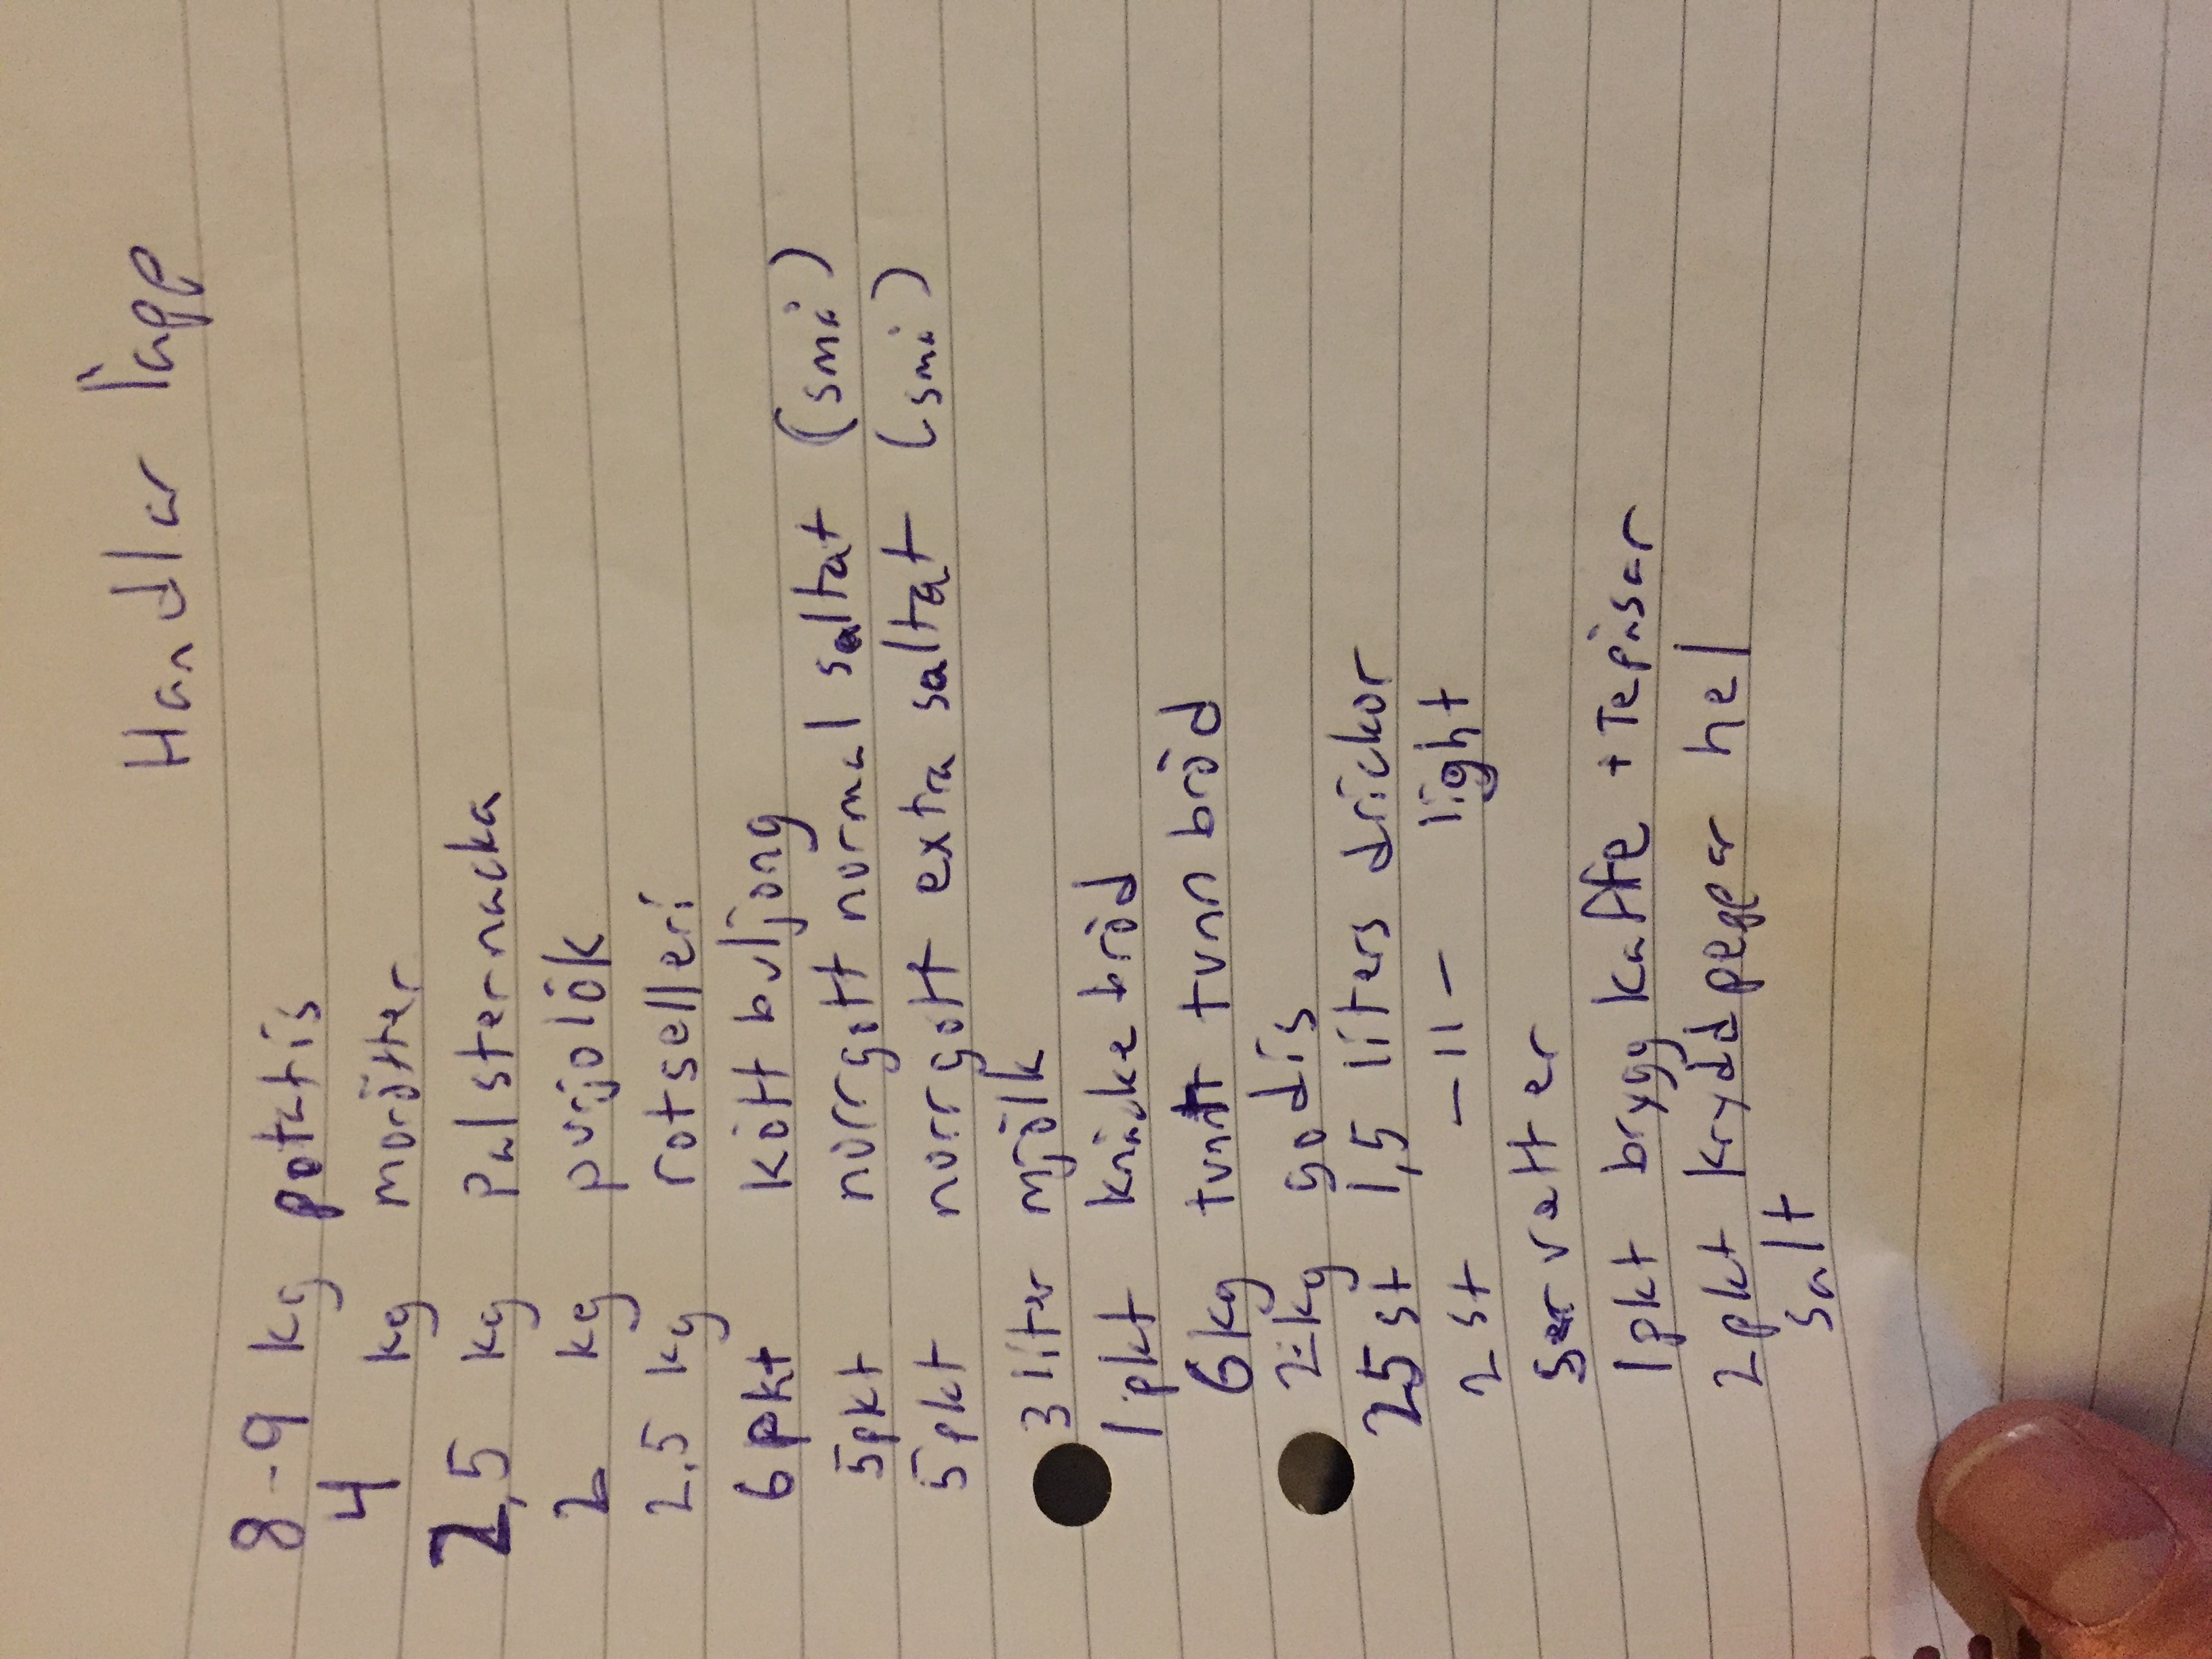 Handlar lapp
8-9 kg potatis
4 kg morötter
2,5 kg Palsternacka
2 kg purjolök
2,5 kg rotselleri
6 pkt kött buljong
5 pkt norrgott normal saltat (smi)
5 pkt norrgott extra saltat (smi)
3 liter mjölk
1 pkt knäcke bröd
6 kg tunnt tunn bröd
2 kg godis
25 st 1,5 liters drickor
2 st -11- light
Servetter
1 pkt brygg kaffe + Tepåsar
2 pkt kryddpeppar hel
Salt